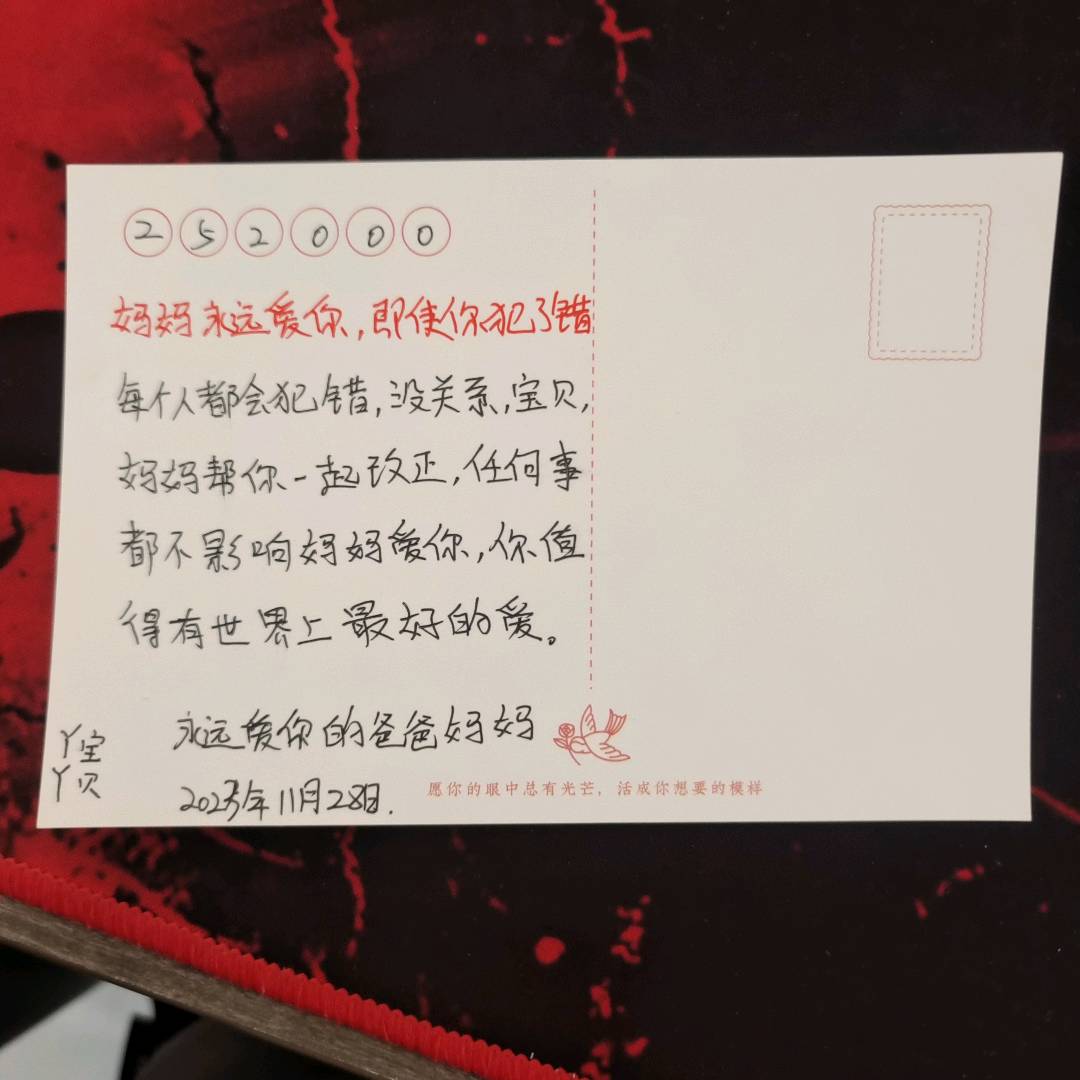 252000
妈妈永远爱你,即使你犯了错
每个人都会犯错,没关系,宝贝,
妈妈帮你一起改正,任何事
都不影响妈妈爱你,你值
得有世界上最好的爱。
永远爱你的爸爸妈妈
2023年11月28日.
丫宝
丫贝
愿你的眼中总有光芒,活成你想要的模样